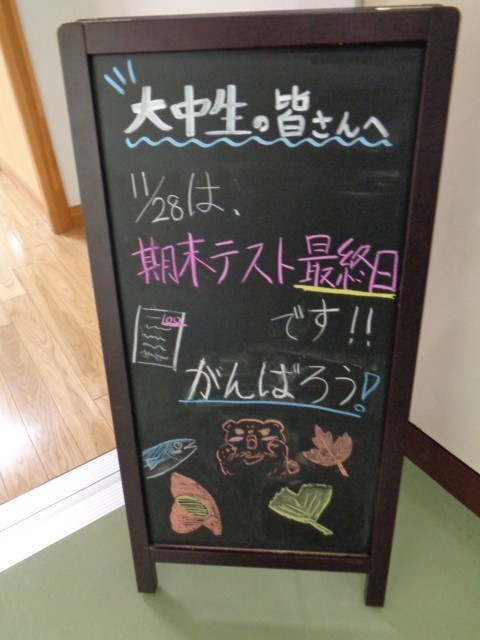 大中生の皆さんへ
11/28は、
期末テスト最終日
です!!
100
がんばろう!